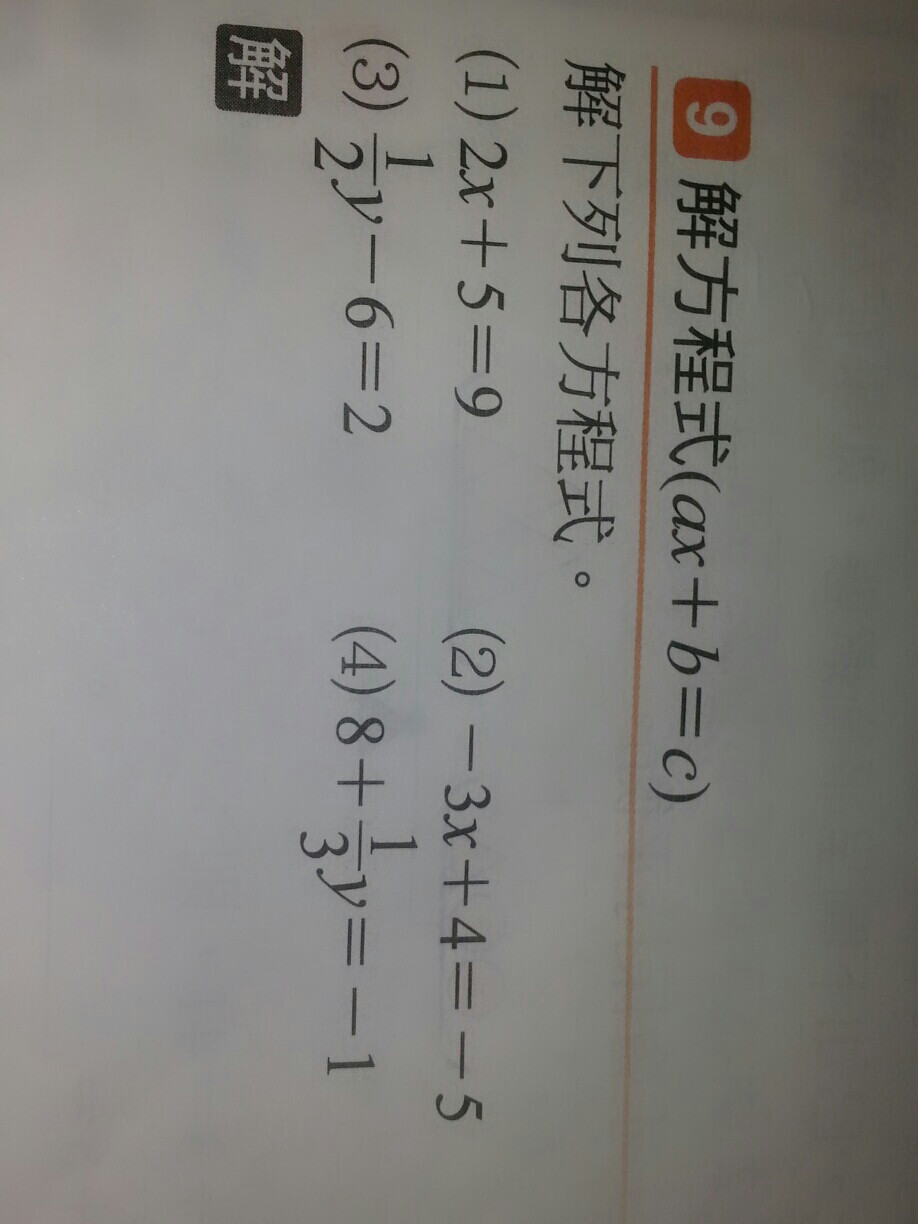 9 解方程式(ax+b=c)
解下列各方程式。
(1) 2x+5=9 (2) -3x+4=-5
(3) 1/2y-6=2 (4) 8+1/3y=-1
解